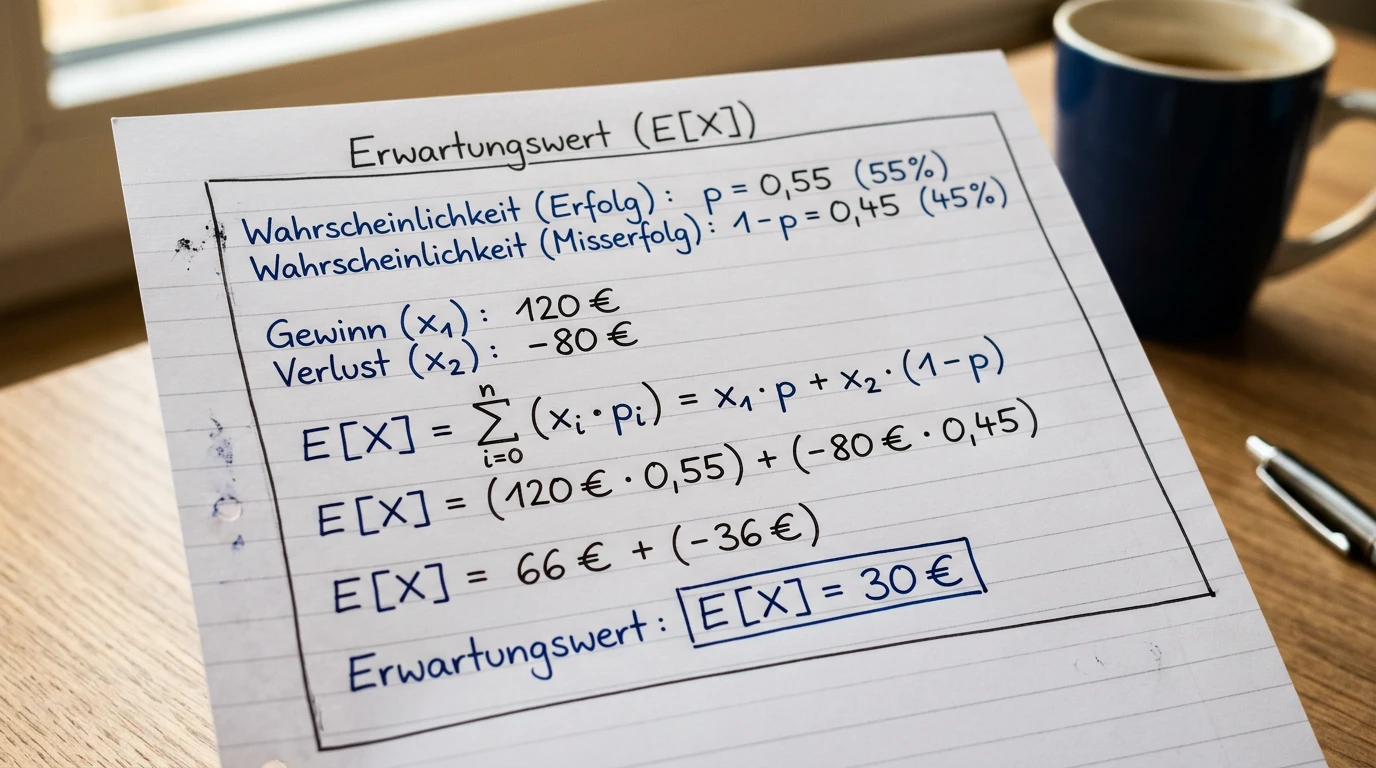 Erwartungswert (E[X])
Wahrscheinlichkeit (Erfolg): p = 0,55 (55%)
Wahrscheinlichkeit (Misserfolg): 1-p = 0,45 (45%)
Gewinn (x₁): 120 €
Verlust (x₂): -80 €
E[X] = ∑ⁿᵢ₌₀ (xᵢ · pᵢ) = x₁ · p + x₂ · (1-p)
E[X] = (120 € · 0,55) + (-80 € · 0,45)
E[X] = 66 € + (-36 €)
Erwartungswert: E[X] = 30 €